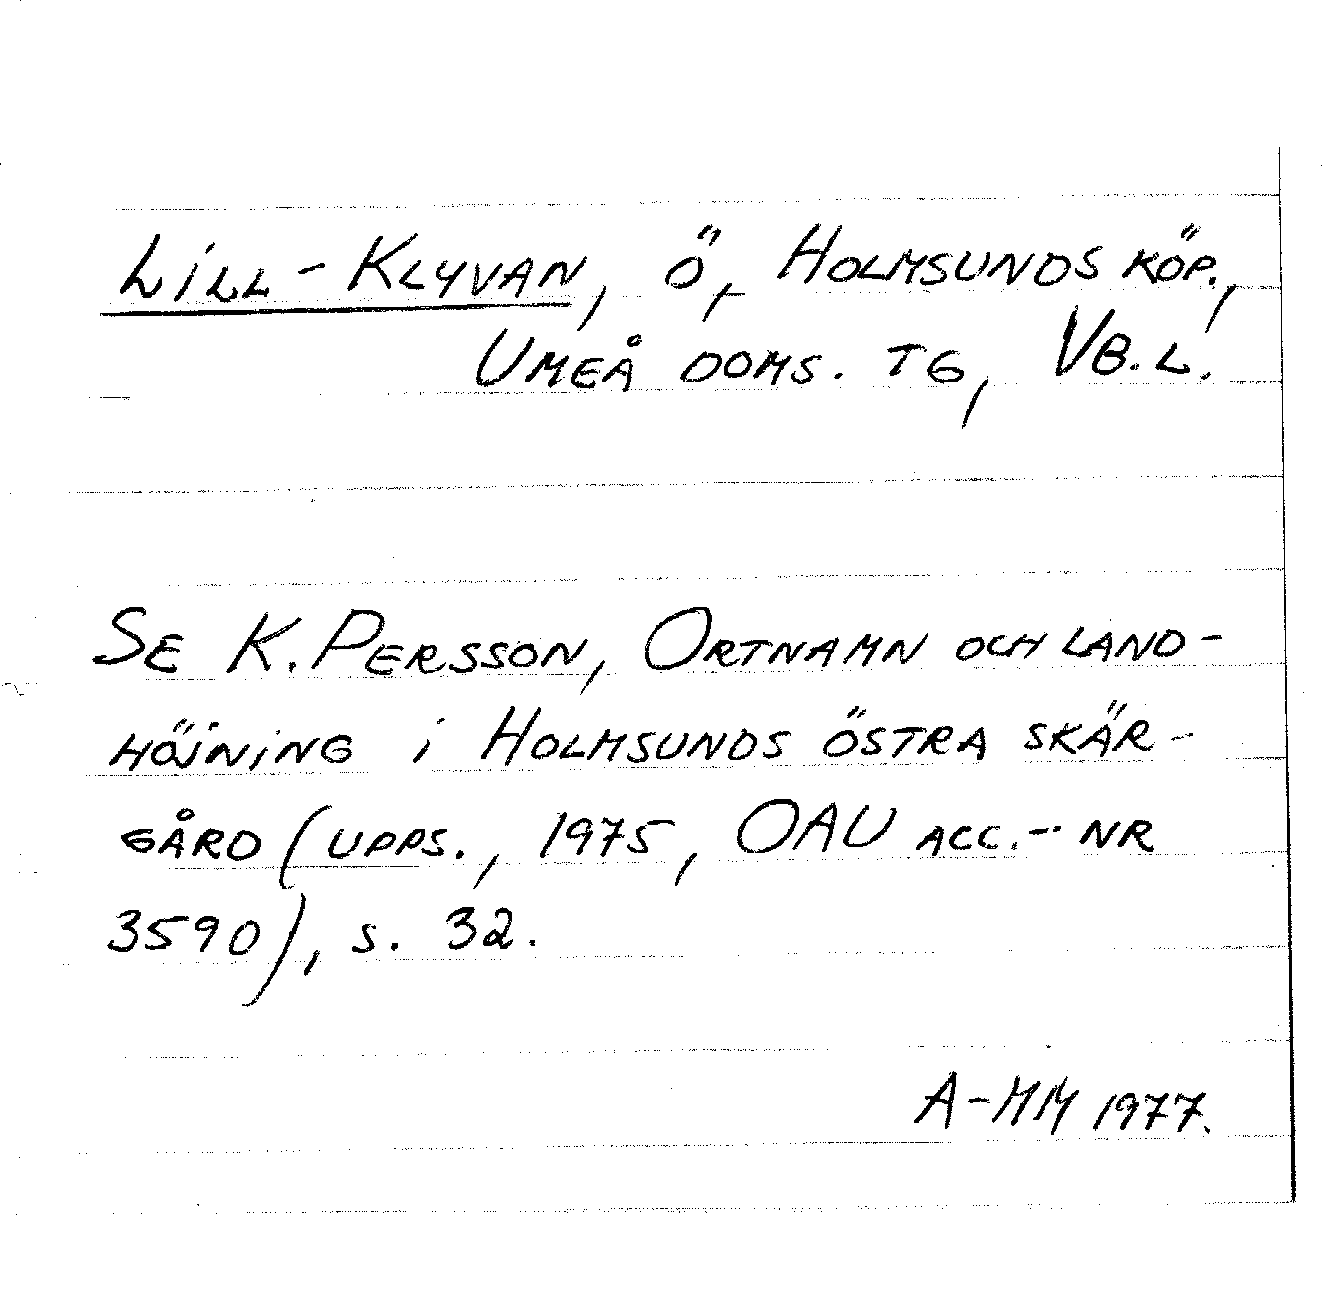 LILL-KLYVAN, Ö, HOLMSUNDS KÖP.,
UMEÅ DOMS. TG, VB.L.
SE K. PERSSON, ORTNAMN OCH LAND-
HÖJNING I HOLMSUNDS ÖSTRA SKÄR-
GÅRD (UPPS., 1975, OAU ACC.-NR
3590), S. 32.
A-MM 1977.